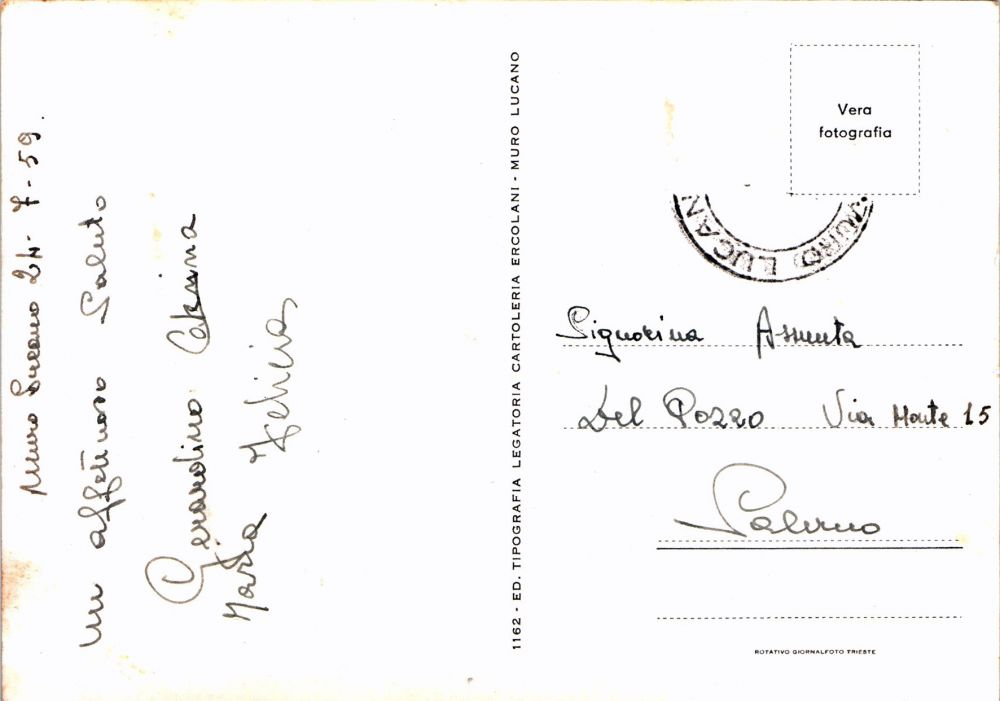 Muro Lucano 24-7-59.
un affettuoso saluto
Gerardino
Maria Felicia
1162 - ED. TIPOGRAFIA LEGATORIA CARTOLERIA ERCOLANI - MURO LUCANO
Vera
fotografia
MURO LUCAN
Signorina Assunta
Del Pozzo Via Monte 15
Salerno
ROTATIVO GIORNALFOTO TRIESTE